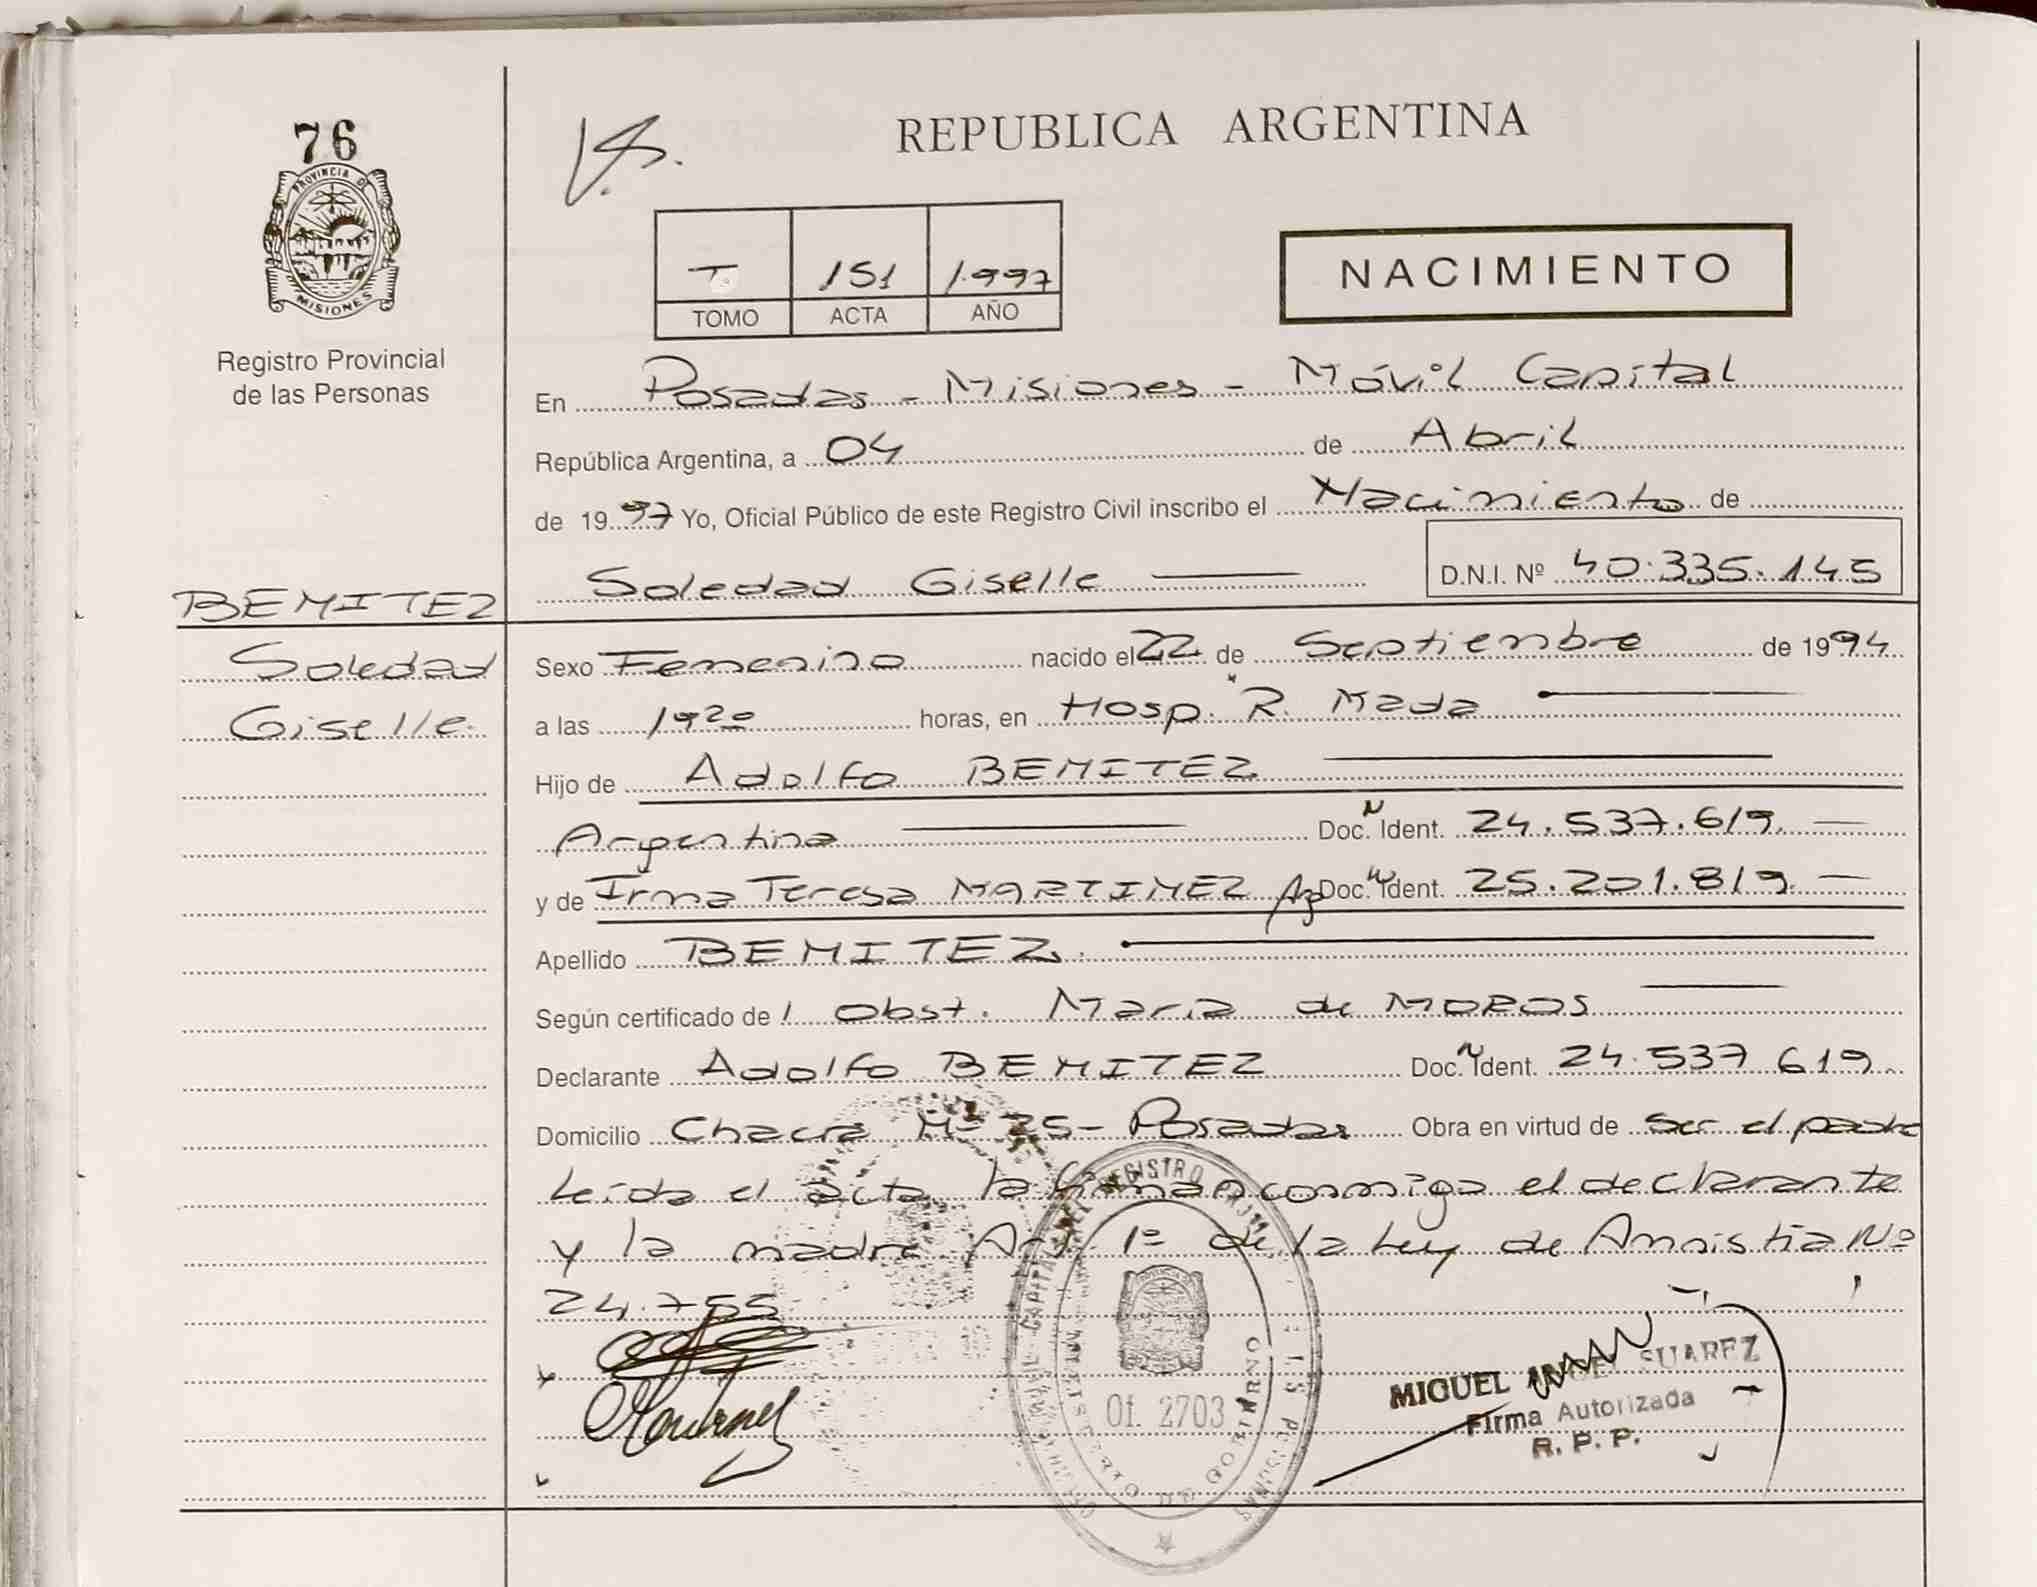 76
PROVINCIA DE
MISIONES
Registro Provincial
de las Personas
BENITEZ
Soledad
Giselle.
REPUBLICA ARGENTINA
T. 151 1.997
TOMO ACTA AÑO
NACIMIENTO
En Posadas - Misiones - Móvil Capital
República Argentina, a 04 de Abril
de 1997 Yo, Oficial Público de este Registro Civil inscribo el Nacimiento de
Soledad Giselle D.N.I. Nº 40.335.145
Sexo Femenino nacido el 22 de Septiembre de 1994
a las 1920 horas, en Hosp. R. Mada
Hijo de Adolfo BENITEZ
Argentino Doc. N Ident. 24.537.619.
y de Irma Teresa MARTINEZ Ag Doc. N Ident. 25.201.819.
Apellido BENITEZ.
Según certificado de l Obst. Maria de MOROS
Declarante Adolfo BENITEZ Doc. N Ident. 24.537.619.
Domicilio Chacra Nº 25 - Posadas Obra en virtud de ser el padre
Leida el acta la firman conmigo el declarante
y la madre Art. 1º de la Ley de Amnistia Nº
24.755
Of. 2703
MIGUEL ANGEL SUAREZ
Firma Autorizada
R. P. P.